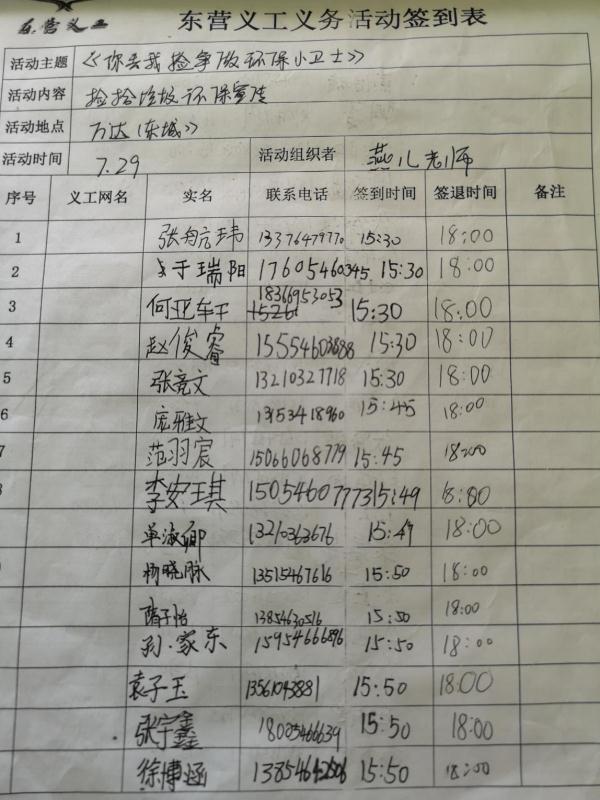 东营义工 东营义工义务活动签到表
活动主题 《你丢我捡争做环保小卫士》
活动内容 捡拾垃圾环保宣传
活动地点 万达(东城)
活动时间 7.29 活动组织者 燕儿老师
序号 义工网名 实名 联系电话 签到时间 签退时间 备注
1 13376479770 15:30 18:00
2 于瑞阳 17605460345 15:30 18:00
3 18366953053 15:30 18:00
4 赵俊睿 15554603888 15:30 18:00
5 张亮文 13210327718 15:30 18:00
6 庞雅文 15:45 18:00
7 范羽宸 15066068779 15:45 18:00
李安琪 15054607773 15:49 18:00
单淑卿 13210363676 15:49 18:00
杨晓脉 13515467616 15:50 18:00
隋子怡 13854630516 15:50 18:00
孙家东 15954666896 15:50 18:00
袁子玉 13561043881 15:50 18:00
张宁鑫 18005466639 15:50 18:00
徐博涵 15:50 18:00